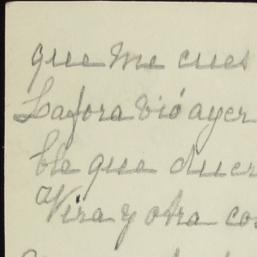 que me cues
Lafora vió ayer
ble que duer
Vira y otra co